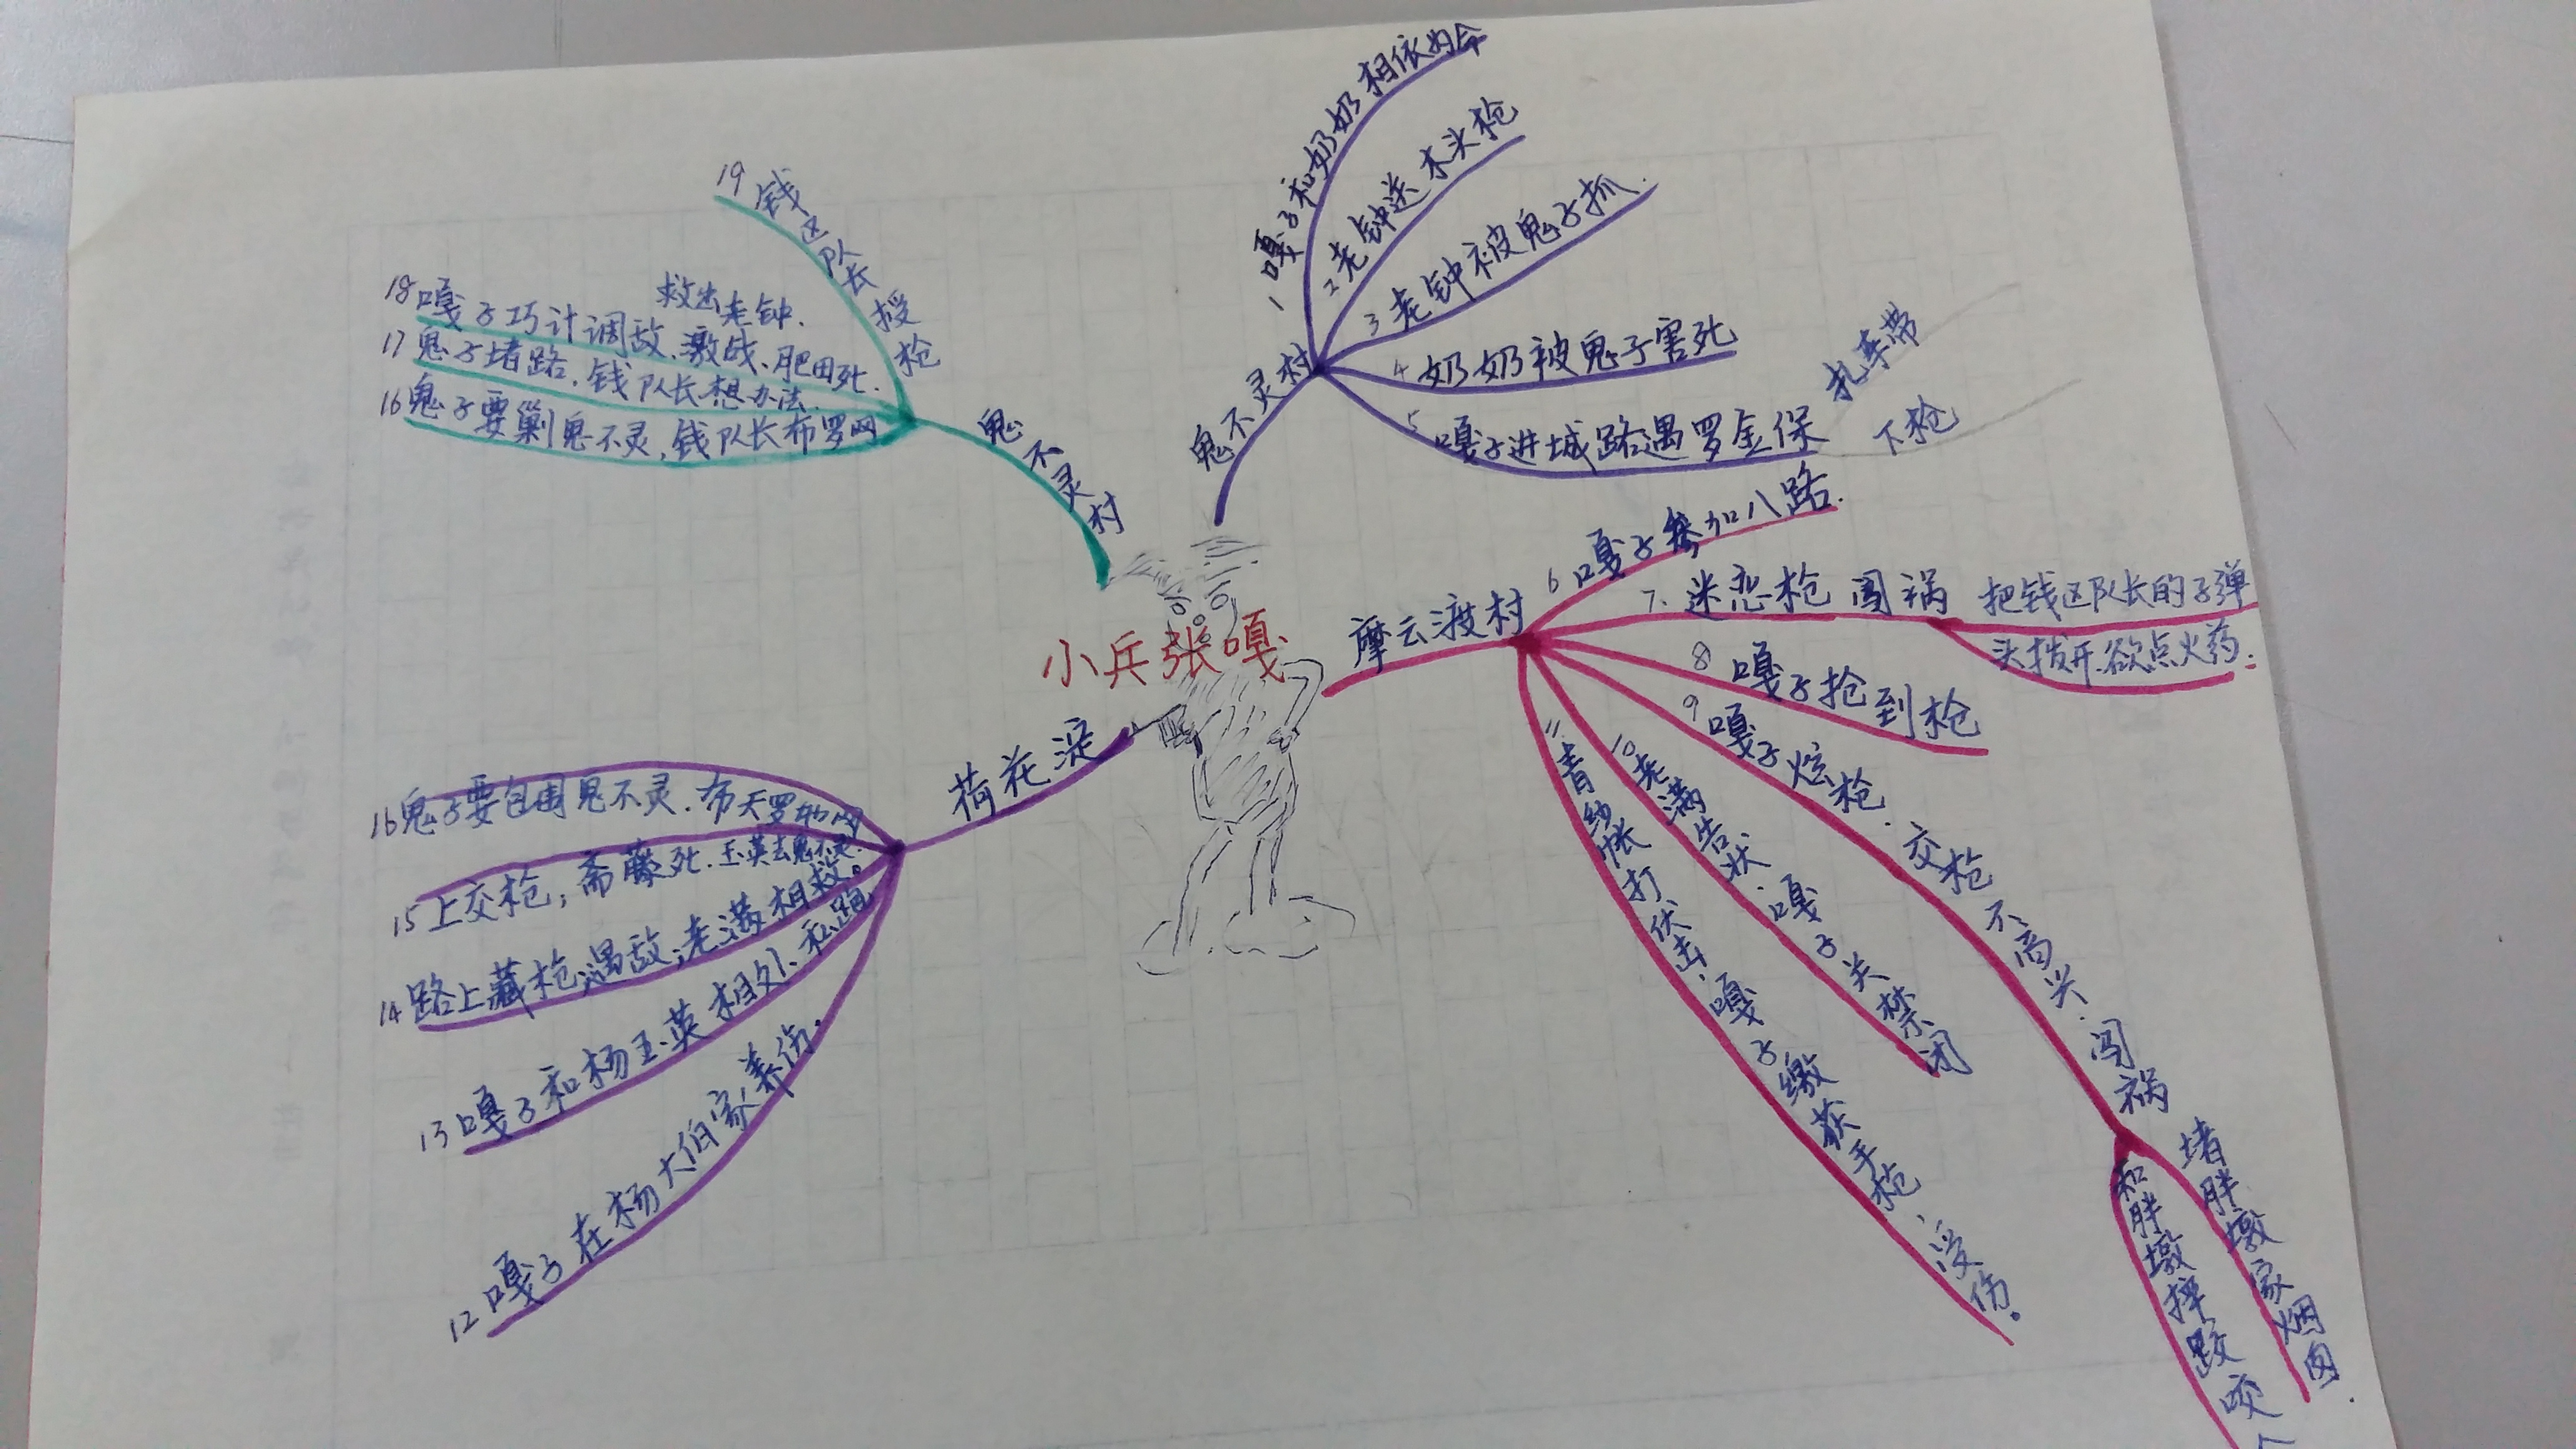 小兵张嘎
鬼不灵村
1 嘎子和奶奶相依为命
2 老钟送木头枪
3 老钟被鬼子抓.
4 奶奶被鬼子害死
5 嘎子进城路遇罗金保
扎车带
下枪
摩云渡村
6 嘎子参加八路.
7. 迷恋枪 闯祸
把钱区队长的子弹
头拨开.欲点火药.
8 嘎子抢到枪
9 嘎子炫枪.交枪不高兴.闯祸
堵胖墩家烟囱.
和胖墩摔跤咬
10 老满告状.嘎子关禁闭
11. 青纱帐打伏击、嘎子缴获手枪、受伤。
荷花淀
12 嘎子在杨大伯家养伤.
13 嘎子和杨玉英相处、私跑
14 路上藏枪,遇敌;老满相救。
15 上交枪;斋藤死.玉英去鬼不灵.
16 鬼子要包围鬼不灵.布天罗地网
鬼不灵村
16 鬼子要剿鬼不灵,钱队长布罗网
17 鬼子堵路.钱队长想办法.
18 嘎子巧计调敌、激战、肥田死.
救出老钟.
19 钱区队长授枪